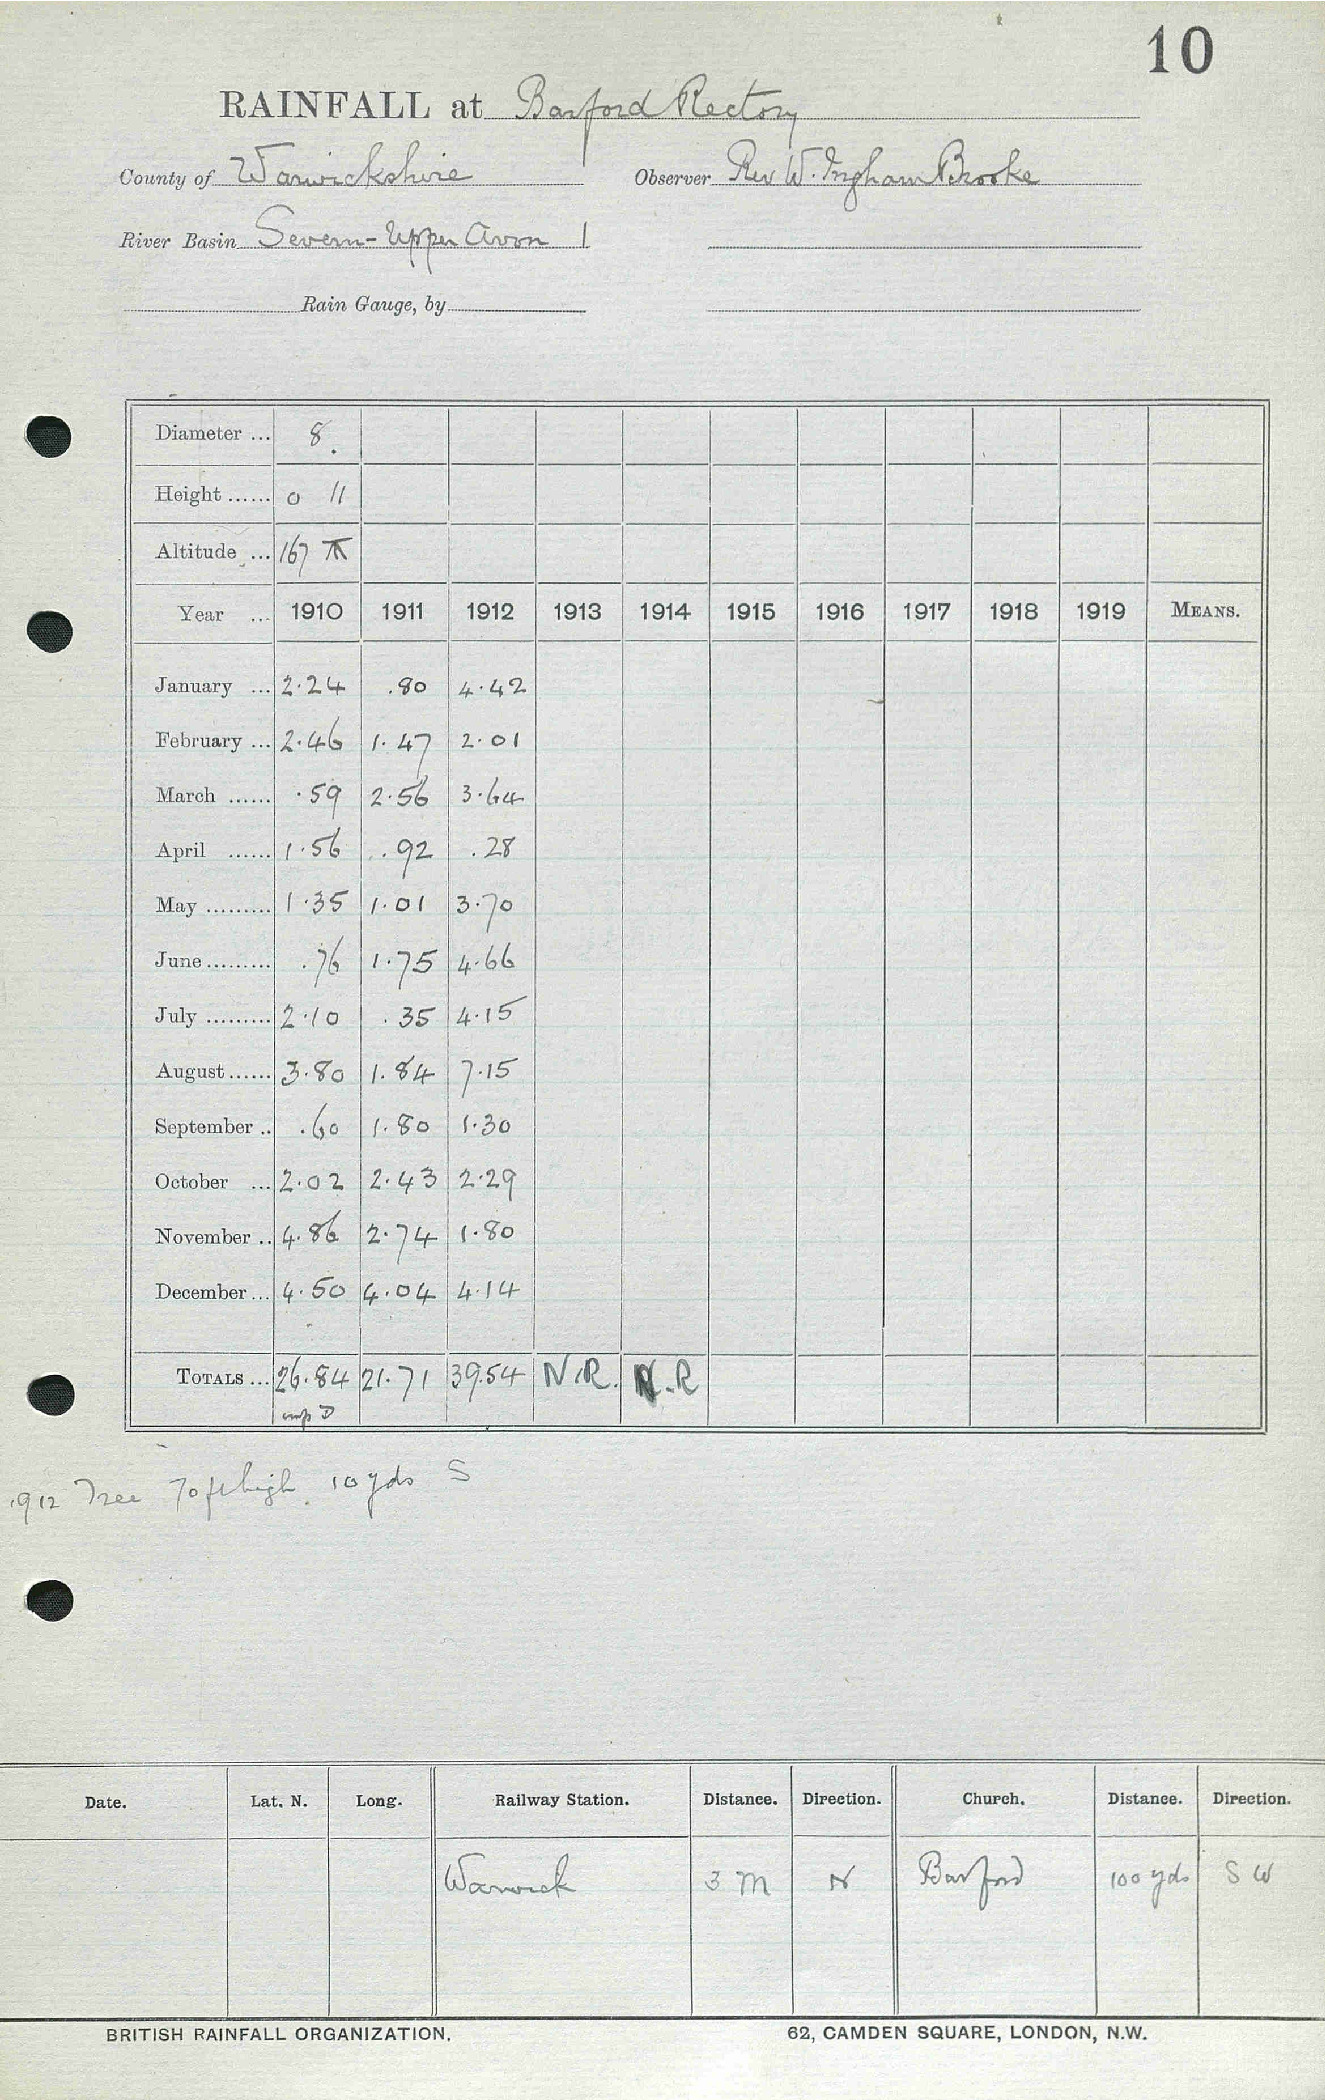 10
RAINFALL at Barford Rectory
County of Warwickshire Observer Rev W. Ingham Brooke
River Basin Severn - Upper Avon 1
Rain Gauge, by
Diameter ... 8.
Height ...... 0 11
Altitude ... 167
Year ... 1910 1911 1912 1913 1914 1915 1916 1917 1918 1919 MEANS.
January ... 2.24 .80 4.42
February ... 2.46 1.47 2.01
March ...... .59 2.56 3.64
April ...... 1.56 .92 .28
May ......... 1.35 1.01 3.70
June ......... .76 1.75 4.66
July ......... 2.10 .35 4.15
August ...... 3.80 1.84 7.15
September .. .60 1.80 1.30
October ... 2.02 2.43 2.29
November .. 4.86 2.74 1.80
December ... 4.50 4.04 4.14
TOTALS ... 26.84 21.71 39.54 N.R. N.R
1912 Tree 70 ft high 10 yds S
Date. Lat. N. Long. Railway Station. Distance. Direction. Church. Distance. Direction.
Warwick 3 M N Barford 100 yds S W
BRITISH RAINFALL ORGANIZATION. 62, CAMDEN SQUARE, LONDON, N.W.